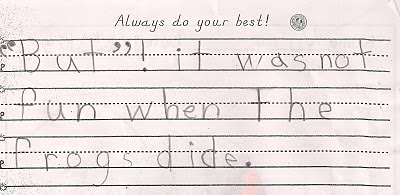 Always do your best!
"But"! it was not
fun when the
frogs dide.